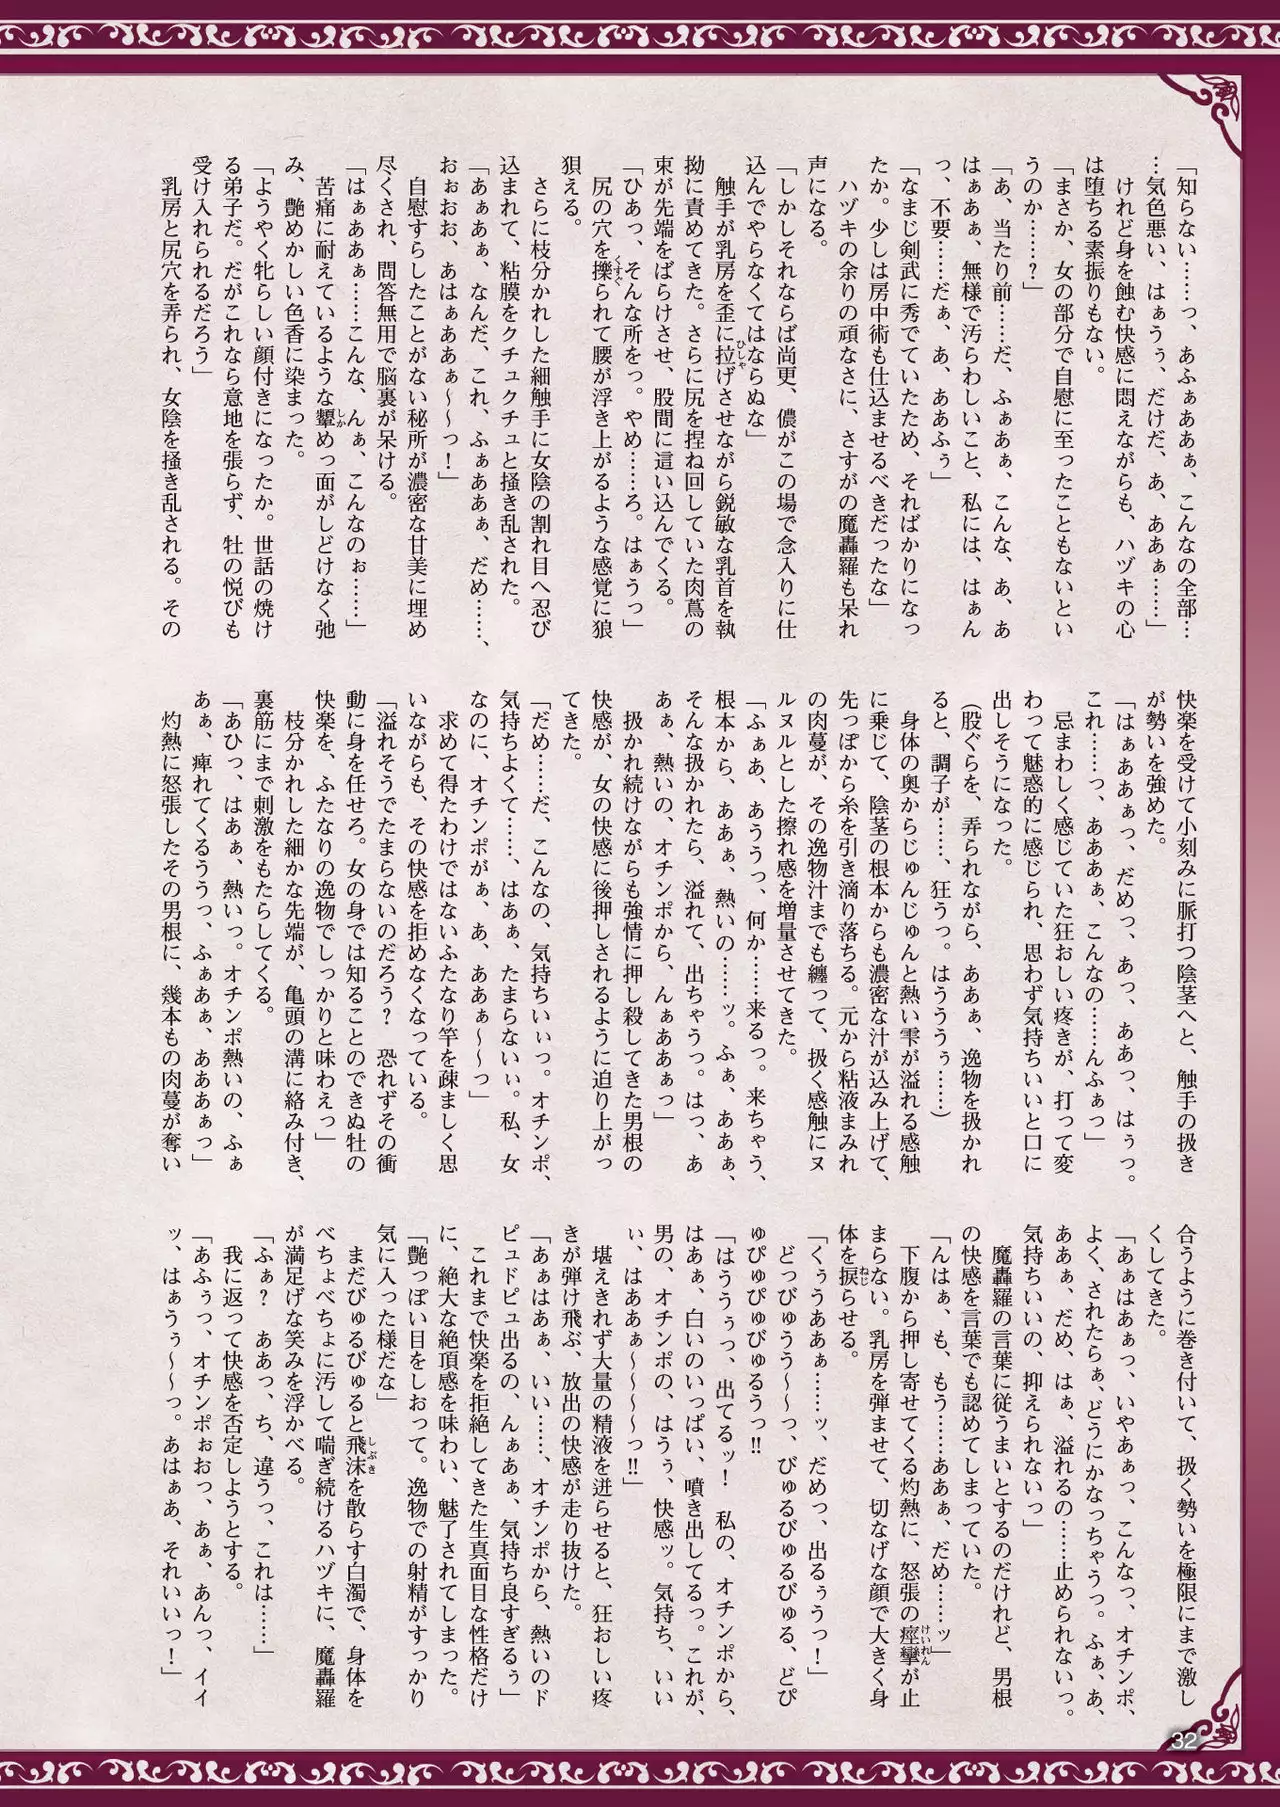 「知らない……っ、あふぁああぁ、こんなの全部…
…気色悪い、はぁうぅ、だけだ、あ、ああぁ……」
けれど身を蝕む快感に悶えながらも、ハヅキの心
は堕ちる素振りもない。
「まさか、女の部分で自慰に至ったこともないとい
うのか……？」
「あ、当たり前……だ、ふぁあぁ、こんな、あ、あ
はぁあぁ、無様で汚らわしいこと、私には、はぁん
っ、不要……だぁ、あ、ああふぅ」
「なまじ剣武に秀でていたため、そればかりになっ
たか。少しは房中術も仕込ませるべきだったな」
ハヅキの余りの頑なさに、さすがの魔轟羅も呆れ
声になる。
「しかしそれならば尚更、儂がこの場で念入りに仕
込んでやらなくてはならぬな」
触手が乳房を歪に拉げさせながら鋭敏な乳首を執
拗に責めてきた。さらに尻を捏ね回していた肉蔦の
束が先端をばらけさせ、股間に這い込んでくる。
「ひあっ、そんな所をっ。やめ……ろ。はぁうっ」
尻の穴を擽られて腰が浮き上がるような感覚に狼
狽える。
さらに枝分かれした細触手に女陰の割れ目へ忍び
込まれて、粘膜をクチュクチュと掻き乱された。
「あぁあぁ、なんだ、これ、ふぁああぁ、だめ……、
おぉおお、あはぁああぁ～～っ！」
自慰すらしたことがない秘所が濃密な甘美に埋め
尽くされ、問答無用で脳裏が呆ける。
「はぁああぁ……こんな、んぁ、こんなのぉ……」
苦痛に耐えているような顰めっ面がしどけなく弛
み、艶めかしい色香に染まった。
「ようやく牝らしい顔付きになったか。世話の焼け
る弟子だ。だがこれなら意地を張らず、牡の悦びも
受け入れられるだろう」
乳房と尻穴を弄られ、女陰を掻き乱される。その
快楽を受けて小刻みに脈打つ陰茎へと、触手の扱き
が勢いを強めた。
「はぁああぁっ、だめっ、あっ、ああっ、はぅっ。
これ……っ、あああぁ、こんなの……んふぁっ」
忌まわしく感じていた狂おしい疼きが、打って変
わって魅惑的に感じられ、思わず気持ちいいと口に
出しそうになった。
（股ぐらを、弄られながら、ああぁ、逸物を扱かれ
ると、調子が……、狂うっ。はうううぅ……）
身体の奥からじゅんじゅんと熱い雫が溢れる感触
に乗じて、陰茎の根本からも濃密な汁が込み上げて、
先っぽから糸を引き滴り落ちる。元から粘液まみれ
の肉蔓が、その逸物汁までも纏って、扱く感触にヌ
ルヌルとした擦れ感を増量させてきた。
「ふぁあ、あううっ、何か……来るっ。来ちゃう、
根本から、ああぁ、熱いの……ッ。ふぁ、ああぁ、
そんな扱かれたら、溢れて、出ちゃうっ。はっ、あ
あぁ、熱いの、オチンポから、んぁああぁっ」
扱かれ続けながらも強情に押し殺してきた男根の
快感が、女の快感に後押しされるように迫り上がっ
てきた。
「だめ……だ、こんなの、気持ちいぃっ。オチンポ、
気持ちよくて……、はあぁ、たまらないぃ。私、女
なのに、オチンポがぁ、あ、ああぁ～～っ」
求めて得たわけではないふたなり竿を疎ましく思
いながらも、その快感を拒めなくなっている。
「溢れそうでたまらないのだろう？　恐れずその衝
動に身を任せろ。女の身では知ることのできぬ牡の
快楽を、ふたなりの逸物でしっかりと味わえっ」
枝分かれした細かな先端が、亀頭の溝に絡み付き、
裏筋にまで刺激をもたらしてくる。
「あひっ、はあぁ、熱いっ。オチンポ熱いの、ふぁ
あぁ、痺れてくるううっ、ふぁあぁ、あああぁっ」
灼熱に怒張したその男根に、幾本もの肉蔓が奪い
合うように巻き付いて、扱く勢いを極限にまで激し
くしてきた。
「あぁはあぁっ、いやあぁっ、こんなっ、オチンポ、
よく、されたらぁ、どうにかなっちゃうっ。ふぁ、あ、
ああぁ、だめ、はぁ、溢れるの……止められないっ。
気持ちいいの、抑えられないっ」
魔轟羅の言葉に従うまいとするのだけれど、男根
の快感を言葉でも認めてしまっていた。
「んはぁ、も、もう……ああぁ、だめ……ッ」
下腹から押し寄せてくる灼熱に、怒張の痙攣が止
まらない。乳房を弾ませて、切なげな顔で大きく身
体を捩らせる。
「くぅうああぁ……ッ、だめっ、出るぅうっ！」
どっびゅうう～～っ、びゅるびゅるびゅる、どぴ
ゅぴゅぴゅびゅるうっ!!
「はううぅっ、出てるッ！　私の、オチンポから、
はあぁ、白いのいっぱい、噴き出してるっ。これが、
男の、オチンポの、はうぅ、快感ッ。気持ち、いい
ぃ、はああぁ～～～～っ!!」
堪えきれず大量の精液を迸らせると、狂おしい疼
きが弾け飛ぶ、放出の快感が走り抜けた。
「あぁはあぁ、いい……、オチンポから、熱いのド
ピュドピュ出るの、んぁあぁ、気持ち良すぎるぅ」
これまで快楽を拒絶してきた生真面目な性格だけ
に、絶大な絶頂感を味わい、魅了されてしまった。
「艶っぽい目をしおって。逸物での射精がすっかり
気に入った様だな」
まだびゅるびゅると飛沫を散らす白濁で、身体を
べちょべちょに汚して喘ぎ続けるハヅキに、魔轟羅
が満足げな笑みを浮かべる。
「ふぁ？　ああっ、ち、違うっ、これは……」
我に返って快感を否定しようとする。
「あふぅっ、オチンポぉおっ、あぁ、あんっ、イイ
ッ、はぁうぅ～～っ。あはぁあ、それいいっ！」
32